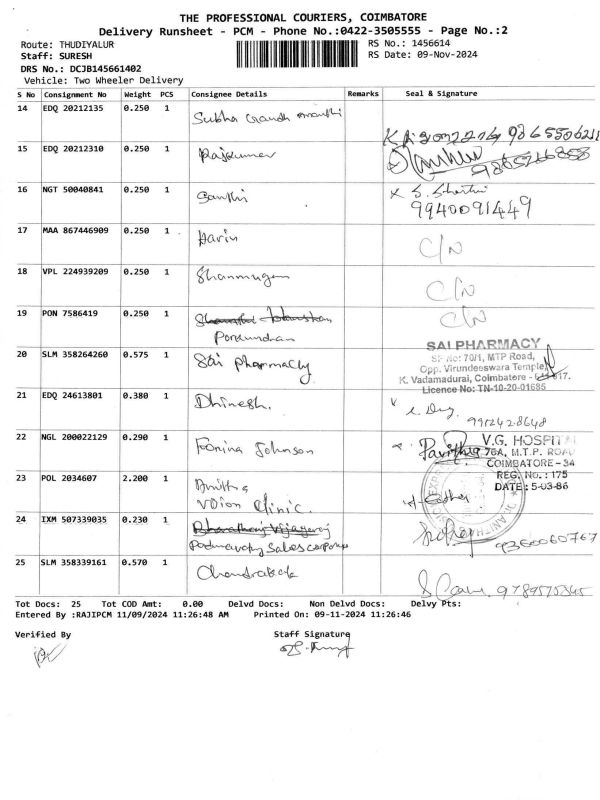 THE PROFESSIONAL COURIERS, COIMBATORE
Delivery Runsheet - PCM - Phone No.:0422-3505555 - Page No.:2
Route: THUDIYALUR
RS No.: 1456614
Staff: SURESH
RS Date: 09-Nov-2024
DRS No.: DCJB145661402
Vehicle: Two Wheeler Delivery
S No Consignment No Weight PCS Consignee Details Remarks Seal & Signature
14 EDQ 20212135 0.250 1 Subha
15 EDQ 20212310 0.250 1 Rajkumar
16 NGT 50040841 0.250 1 Santhi
9940091449
17 MAA 867446909 0.250 1 Harin C/N
18 VPL 224939209 0.250 1 Shanmugam C/N
19 PON 7586419 0.250 1 C/N
SAI PHARMACY
SF No: 70/1, MTP Road,
Opp. Virundeeswara Temple,
K. Vadamadurai, Coimbatore - 641 017.
Licence No: TN-10-20-01685
20 SLM 358264260 0.575 1 Sai Pharmacy
21 EDQ 24613801 0.380 1 Dhinesh.
9912428648
22 NGL 200022129 0.290 1 Johnson Pavithra
V.G. HOSPITAL
76A, M.T.P. ROAD
COIMBATORE - 34
REG. No.: 175
DATE: 5-03-86
23 POL 2034607 2.200 1 Anitha
Vision Clinic.
24 IXM 507339035 0.230 1
Padmavathy Sales corporation
9360060767
25 SLM 358339161 0.570 1 9789575345
Tot Docs: 25 Tot COD Amt: 0.00 Delvd Docs: Non Delvd Docs: Delvy Pts:
Entered By :RAJIPCM 11/09/2024 11:26:48 AM Printed On: 09-11-2024 11:26:46
Verified By Staff Signature